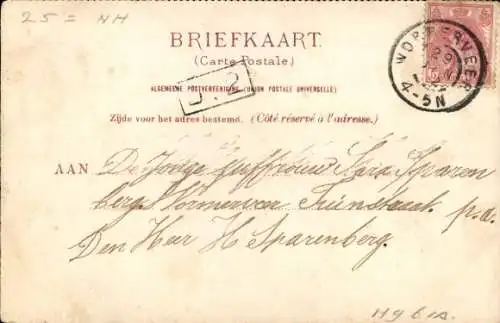 25 = NH
BRIEFKAART.
(Carte Postale.)
WORMERVEER
4-5N
ALGEMEENE POSTVEREENIGING (UNION POSTALE UNIVERSELLE)
J.2
Zijde voor het adres bestemd. (Côté réservé à l'adresse.)
AAN De Jonge Juffrouw Sparen
berg Wormerveer p.a.
Den Heer H Sparenberg.